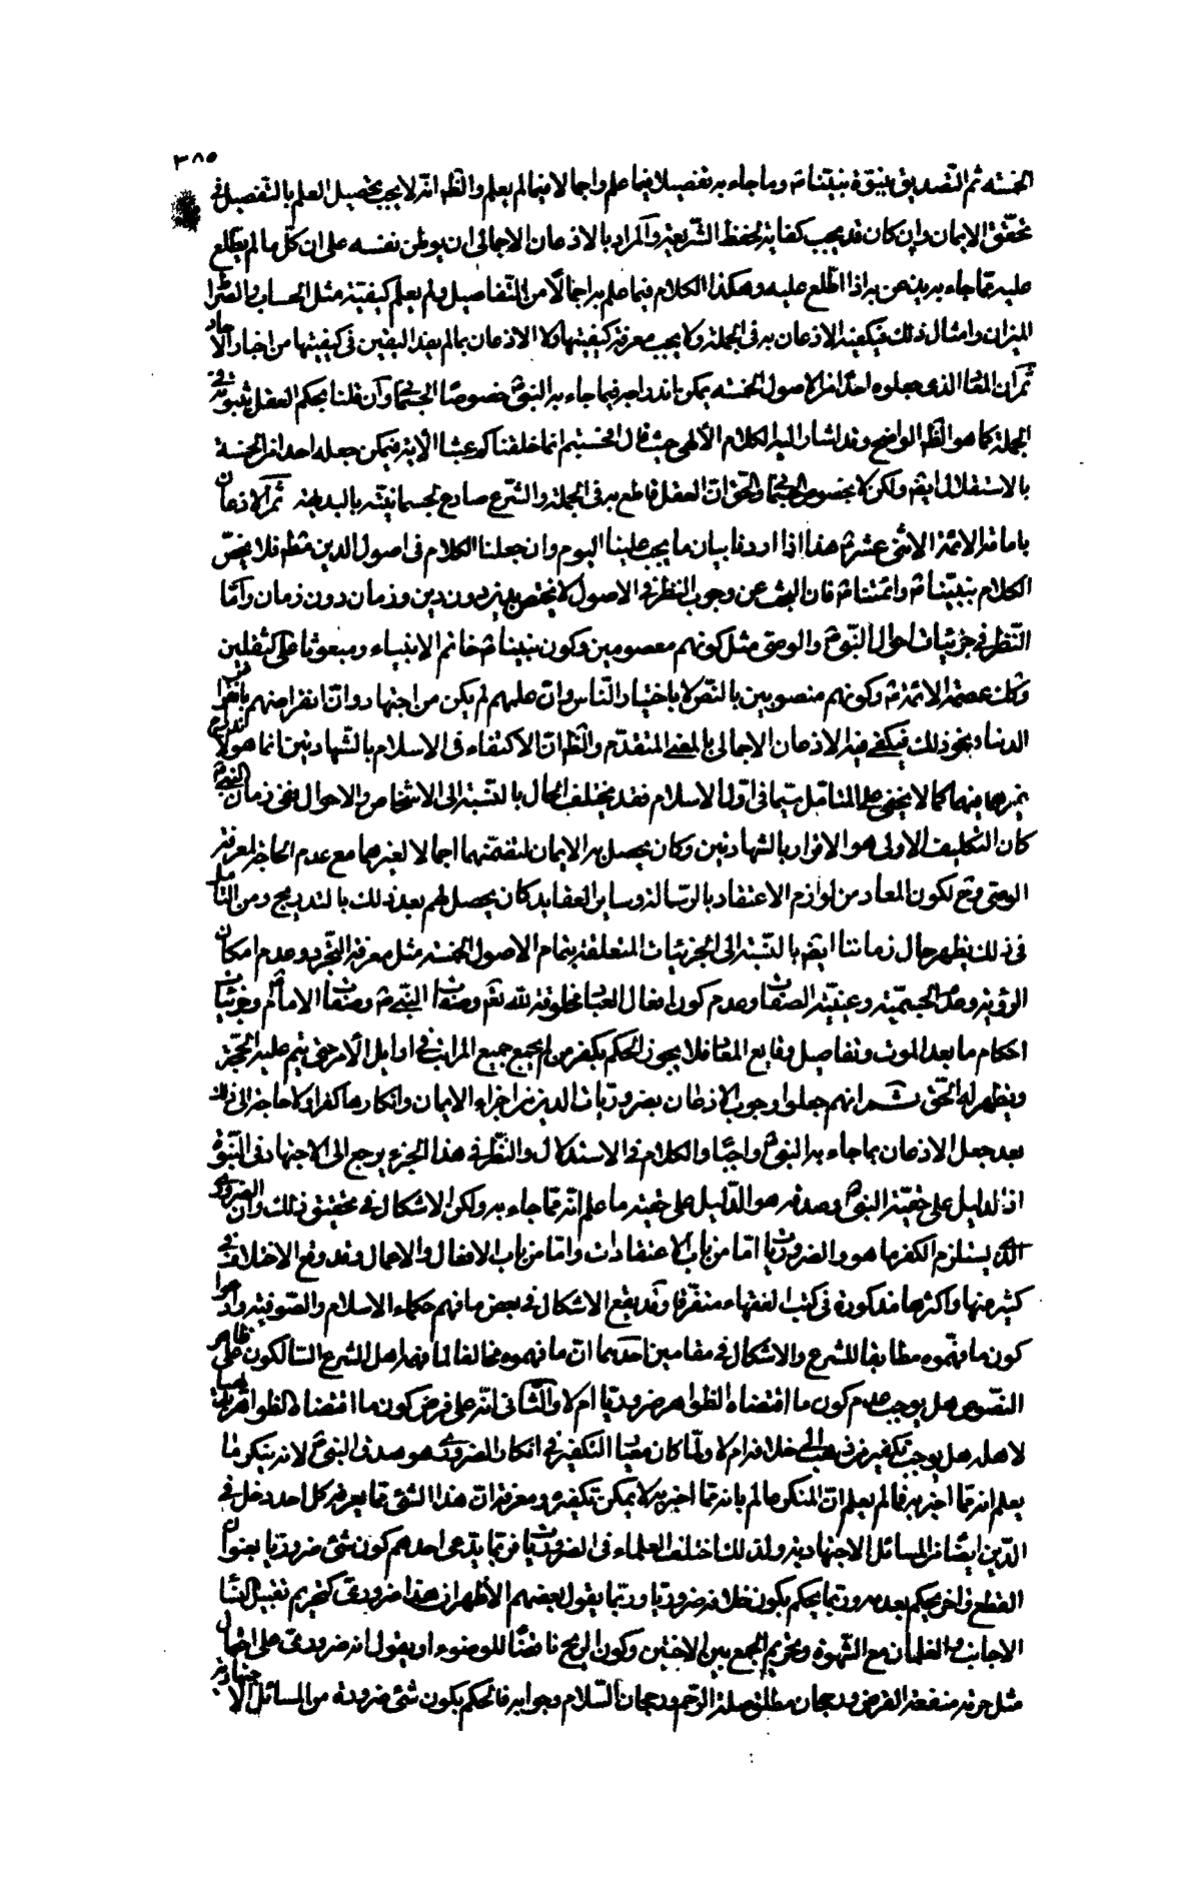 ٣٨٥
الخمسة ثم التصديق بنبوة نبيّنا ص وما جاء به تفصيلا فيما علم واجمالا فيما لم يعلم والظ انّه لا يجب تحصيل العلم بالتفصيل في
تحقّق الايمان وان كان قد يجب كفاية لحفظ الشّريعة والمراد بالاذعان الاجمالى ان يوطن نفسه على ان كلّ ما لم يطلع
عليه ممّا جاء به يذعن به اذا اطّلع عليه وهكذا الكلام فيما علم به اجمالا من التّفاصيل ولم يعلم كيفيّة مثل الحساب والصّراط
الميزان وامثال ذلك فيكفيه الاذعان به فى الجملة ولا يجب معرفة كيفيتها ولا الاذعان بما لم يفد اليقين فى كيفيتها من اخبار الاحاد
ثمّ ان المعاد الذى جعلوه احدا من الاصول الخمسه يمكن اندراجه فيما جاء به النبىّ ص خصوصا الجسمانى وان قلنا بحكم العقل بثبوته فى
الجملة كما هو الظ الواضح وقد اشار اليه الكلام الألهى حيث قال افحسبتم انما خلقناكم عبثا الأية فيمكن جعله احدا من الخمسة
بالاستقلال ايض ولكن لا بخصوص الجسمانى والحقّ انّ العقل قاطع به فى الجملة والشّرع صادع بجسمانيّته بالبديهة ثمّ الاذعان
بامامة الائمّة الاثنى عشر ع هذا اذا اردنا بيان ما يجب علينا اليوم وان جعلنا الكلام فى اصول الدين مظم فلا يختصّ
الكلام بنبيّنا ص وائمتنا ع فان البحث عن وجوب النظر فى الاصول لا يختص بدين دون دين وزمان دون زمان وامّا
النّظر فى جزئيات احوال النّبىّ ص والوصىّ مثل كونهم معصومين وكون نبيّنا ص خاتم الانبياء ومبعوثا على الثقلين
وكك عصمة الائمة ع وكونهم منصوبين بالنصّ لا باختيار النّاس وانّ علمهم لم يكن من اجتهاد وانّ انقراضهم بانقراض
الدنيا ونحو ذلك فيكفى فيه الاذعان الاجمالى بالمعنى المتقدّم والظ انّ الاكتفاء فى الاسلام بالشّهادتين انما هو لاندراج
غيرهما فيهما كما لا يخفى على المتامّل سيّما فى اوّل الاسلام فقد يختلف الحال بالنّسبة الى الاشخاص والاحوال ففى زمان النبىّ ص
كان التكليف الاولى هو الاقرار بالشهادتين وكان يحصل به الايمان لتضمّنهما اجمالا لغيرهما مع عدم الحاجة لمعرفة
الوصى وح لكون المعاد من لوازم الاعتقاد بالرّسالة وساير العقايد كان يحصل لهم بعد ذلك بالتدريج ومن التامل
فى ذلك يظهر حال زماننا ايض بالنّسبة الى الجزئيات المتعلقة بتمام الاصول الخمسه مثل معرفة التّجرد وعدم امكان
الرؤية وعدم الجسميّة وعينيّة الصفات وعدم كون افعال العباد مخلوقة لله تعم وصفات النّبى ص وصفات الامام ع وجزئيات
احكام ما بعد الموت وتفاصيل وقايع المعاد فلا يجوز الحكم بكفر من لم يجمع جميع المراتب فى اوايل الأمر حتى يتم عليه الحجّة
ويظهر له الحقّ ثمّ انهم جعلوا وجوب الاذعان بضروريّات الدين من اجزاء الايمان وانكارها كفرا ولا حاجة الى ذلك
بعد جعل الاذعان بما جاء به النبىّ ص واجبا والكلام فى الاستدلال والنّظر فى هذا الجزء يرجع الى الاجتهاد فى النّبوّة
اذ الدليل على حقيّة النبىّ ص وصدقه هو الدّليل على حقية ما علم انّه ممّا جاء به ولكن الاشكال فى تحقيق ذلك وان الضرورى
الذى يستلزم الكفر ما هو والضروريّات امّا من باب الاعتقادات وامّا من باب الافعال والاعمال وقد وقع الاختلاف فى
كثير منها واكثرها مذكورة فى كتب الفقهاء متفرّقا وقد يقع الاشكال فى بعض ما فهم حكماء الاسلام والصّوفية وادّعوا
كون ما فهموه مطابقا للشرع والاشكال فى مقامين احدهما انّ ما فهموه مخالفا لما فهم اهل الشرع السّالكون على ظاهر
النّصوص هل يوجب عدم كون ما اقتضاه الظواهر ضروريّا ام لا والثّانى انّه على فرض كون ما اقتضاه الظواهر بديهيا
لاهله هل يوجب تكفير من ذهب الى خلافه ام لا ولمّا كان معيار التكفير فى انكار الضرورى هو صدق النبىّ ص لانه ينكر ما
يعلم انه ممّا اخبر به فما لم يعلم انّ المنكر عالم بانه ممّا اخبر به لا يمكن تكفيره ومعرفة ان هذا الشئ ممّا يعرفه كل احد دخل فى
الدّين ايضا من المسائل الاجتهادية ولذلك اختلف العلماء فى الضروريّات فربّما يدّعى احدهم كون شئ ضروريّا بعنوان
القطع واخر يحكم بعدمه وربّما يحكم بكون خلافه ضروريّا وربّما يقول بعضهم الأظهر ان هذا ضرورىّ كتحريم تقبيل النّساء
الاجانب والغلمان مع الشّهوة وتحريم الجمع بين الاختين وكون الريح ناقضا للوضوء او يقول انه ضرورىّ على احتمال
مثل حرمة منفعة القرض ورجحان مطلق صلة الرّحم ورجحان السّلام وجوابه فالحكم بكون شئ ضرورية من المسائل الاجتهادية